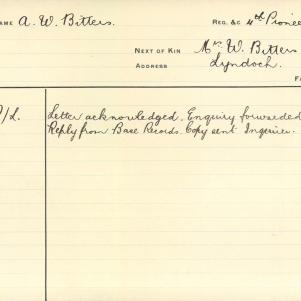 NAME A. W. Bitters. REG. &C 4th Pionee
NEXT OF KIN Mrs. W. Bitters
ADDRESS Lyndoch.
/L. Letter acknowledged. Enquiry forwarded
Reply from Base Records. Copy sent